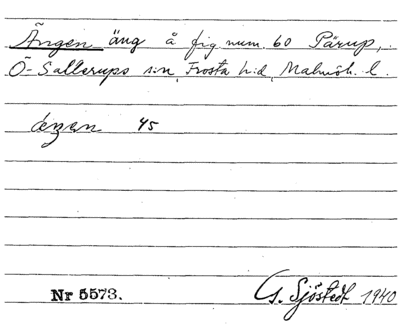 Ängen äng å fig. num. 60 Pärup,
Ö-Sallerups s:n, Frosta h:d, Malmöh. l.
45
Nr 5573.
G. Sjöstedt 1940